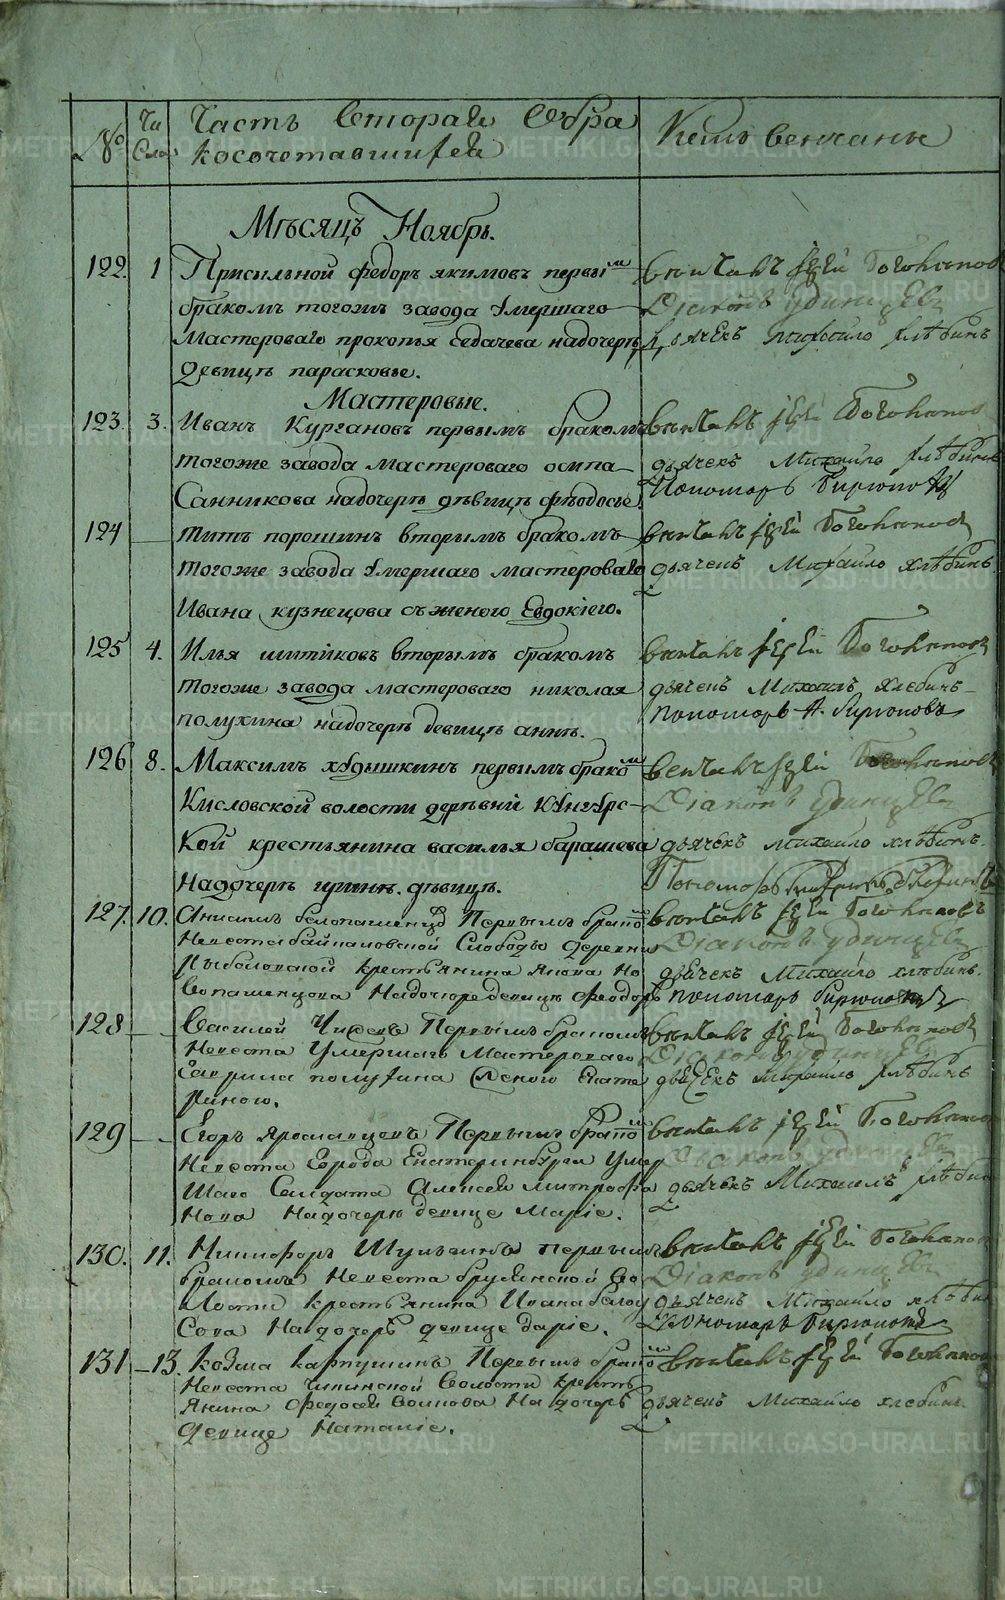 №
Чи
сла
Часть вторая о бра
косочетавшихся
Кемъ венчаны
Мѣсяцъ Ноябрь.
122. 1 Присильной федоръ якимовъ первымъ
бракомъ тогожъ завода умершаго
мастероваго прокопья седачева надочерѣ
девицѣ парасковье.
венчалъ Іерей
Діаконъ Удинцевъ
дьячекъ михайло хлѣбинъ
Мастеровые.
123. 3. Иванъ Кургановъ первымъ бракомъ
тогоже завода мастероваго осипа
Санникова надочерѣ дѣвицѣ фѣодосье.
венчалъ Іерей
дьячекъ Михайло хлѣбинъ
Пономарь Бирюковъ
124 титъ порошинъ вторымъ бракомъ
тогоже завода умершаго мастероваго
Ивана кузнецова съ женою Евдокіею.
венчалъ Іерей
дьячекъ Михайло хлѣбинъ
125 4. Илья шитиковъ вторымъ бракомъ
тогоже завода мастероваго николая
полухина надочерѣ девицѣ аннѣ.
венчалъ Іерей
дьячекъ Михаилъ хлебинъ
пономарь А. Бирюковъ
126 8. Максимъ худышкинъ первымъ бракомъ
Кисловской волости деревни Кунгурс-
кой крестьянина василья барашева
надочерѣ иринѣ. дѣвицѣ.
венчалъ Іерей
Діаконъ Удинцевъ
дьячекъ михайло хлѣбинъ.
Пономарь
127. 10. Первымъ бракомъ
Невеста слободы деревни
крестьянина Якова
надочере девице федоръ
венчалъ Іерей
Діаконъ Удинцевъ
дьячекъ Михайло хлѣбинъ.
пономарь Бирюковъ
128 Василей Первымъ бракомъ
Невеста Умершаго Мастероваго
Гаврила полухина женою Екате
риною.
венчалъ Іерей
Діаконъ Удинцевъ
дьячекъ Михайло хлѣбинъ
129 Егоръ Ярославцевъ Первымъ бракомъ
Невеста Города Екатеринбурга Умер
шаго Солдата Алексея митрофа
нова Надочерѣ девице Маріе.
венчалъ Іерей
Діаконъ Удинцевъ
дьячекъ Михаилъ хлѣбинъ
130. 11. Никифоръ первымъ
бракомъ Невеста брусянской во
лости крестьянина Ивана бело
сова Надочерѣ девице даріе.
венчалъ Іерей
Діаконъ Удинцевъ
дьячекъ Михайло хлѣбинъ
Пономарь Бирюковъ
131 13. Козма карпушинъ Первымъ бракомъ
Невеста волости кресть
янина федосея Надочерѣ
девице Наталіе.
венчалъ Іерей
дьячекъ Михайло хлебинъ
METRIKI.GASO-URAL.RU